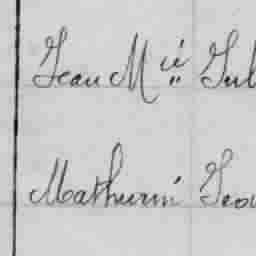 Jean M ie Jul
Mathurin Jea